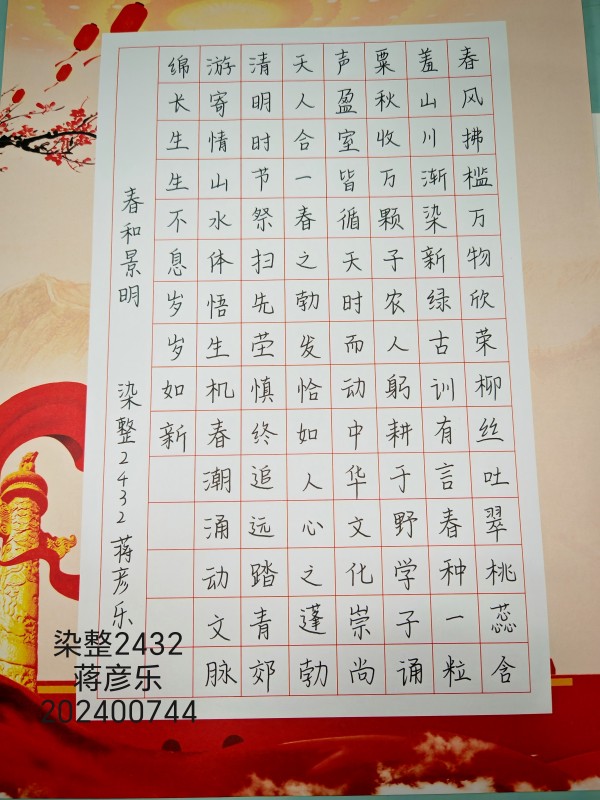 春风拂槛万物欣荣柳丝吐翠桃蕊含
羞山川渐染新绿古训有言春种一粒
粟秋收万颗子农人躬耕于野学子诵
声盈室皆循天时而动中华文化崇尚
天人合一春之勃发恰如人心之蓬勃
清明时节祭扫先茔慎终追远踏青郊
游寄情山水体悟生机春潮涌动文脉
绵长生生不息岁岁如新
春和景明 染整2432 蒋彦乐
染整2432
蒋彦乐
202400744